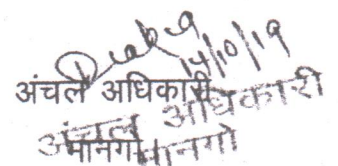 14/10/19
अंचल अधिकारी
अंचल अधिकारी
मानगो
मानगो